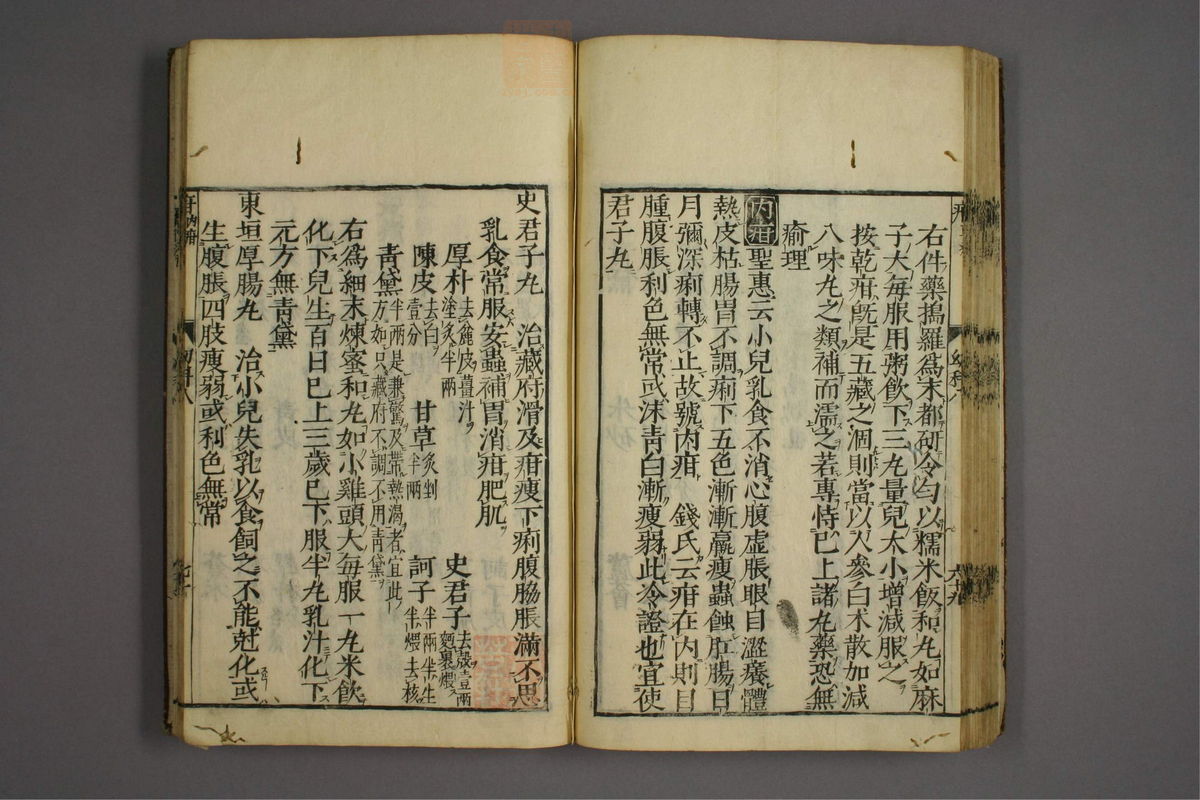 右件藥搗羅爲末都研令勻以糯米飯和丸如麻
子大每服用粥飲下三丸量兒大小增減服之
按乾疳旣是五藏之涸則當以人參白朮散加減
八味丸之類補而濡之若專恃已上諸丸藥恐無
瘉理
內疳 聖惠云小兒乳食不消心腹虛脹眼目澀癢體
熱皮枯腸胃不調痢下五色漸漸羸瘦蟲蝕肛腸日
月彌深痢轉不止故號內疳 錢氏云疳在內則目
腫腹脹利色無常或沫青白漸瘦弱此冷證也宜使
君子丸
幼科八
六十九
史君子丸 治藏府滑及疳瘦下痢腹脇脹滿不思
乳食常服安蟲補胃消疳肥肌
厚朴 去麄皮薑汁塗炙半兩 史君子 去殼壹兩麪裹煨
陳皮 去白壹分 甘草 炙剉半兩 訶子 半兩半生半煨去核
靑黛 半兩是兼驚及帶熱渴者宜此方如只藏府不調不用靑黛
右爲細末煉蜜和丸如小雞頭大每服一丸米飲
化下兒生百日已上三歲已下服半丸乳汁化下
元方無靑黛
東垣厚腸丸 治小兒失乳以食飼之不能尅化或
生腹脹四肢瘦弱或利色無常
幼科八
七十